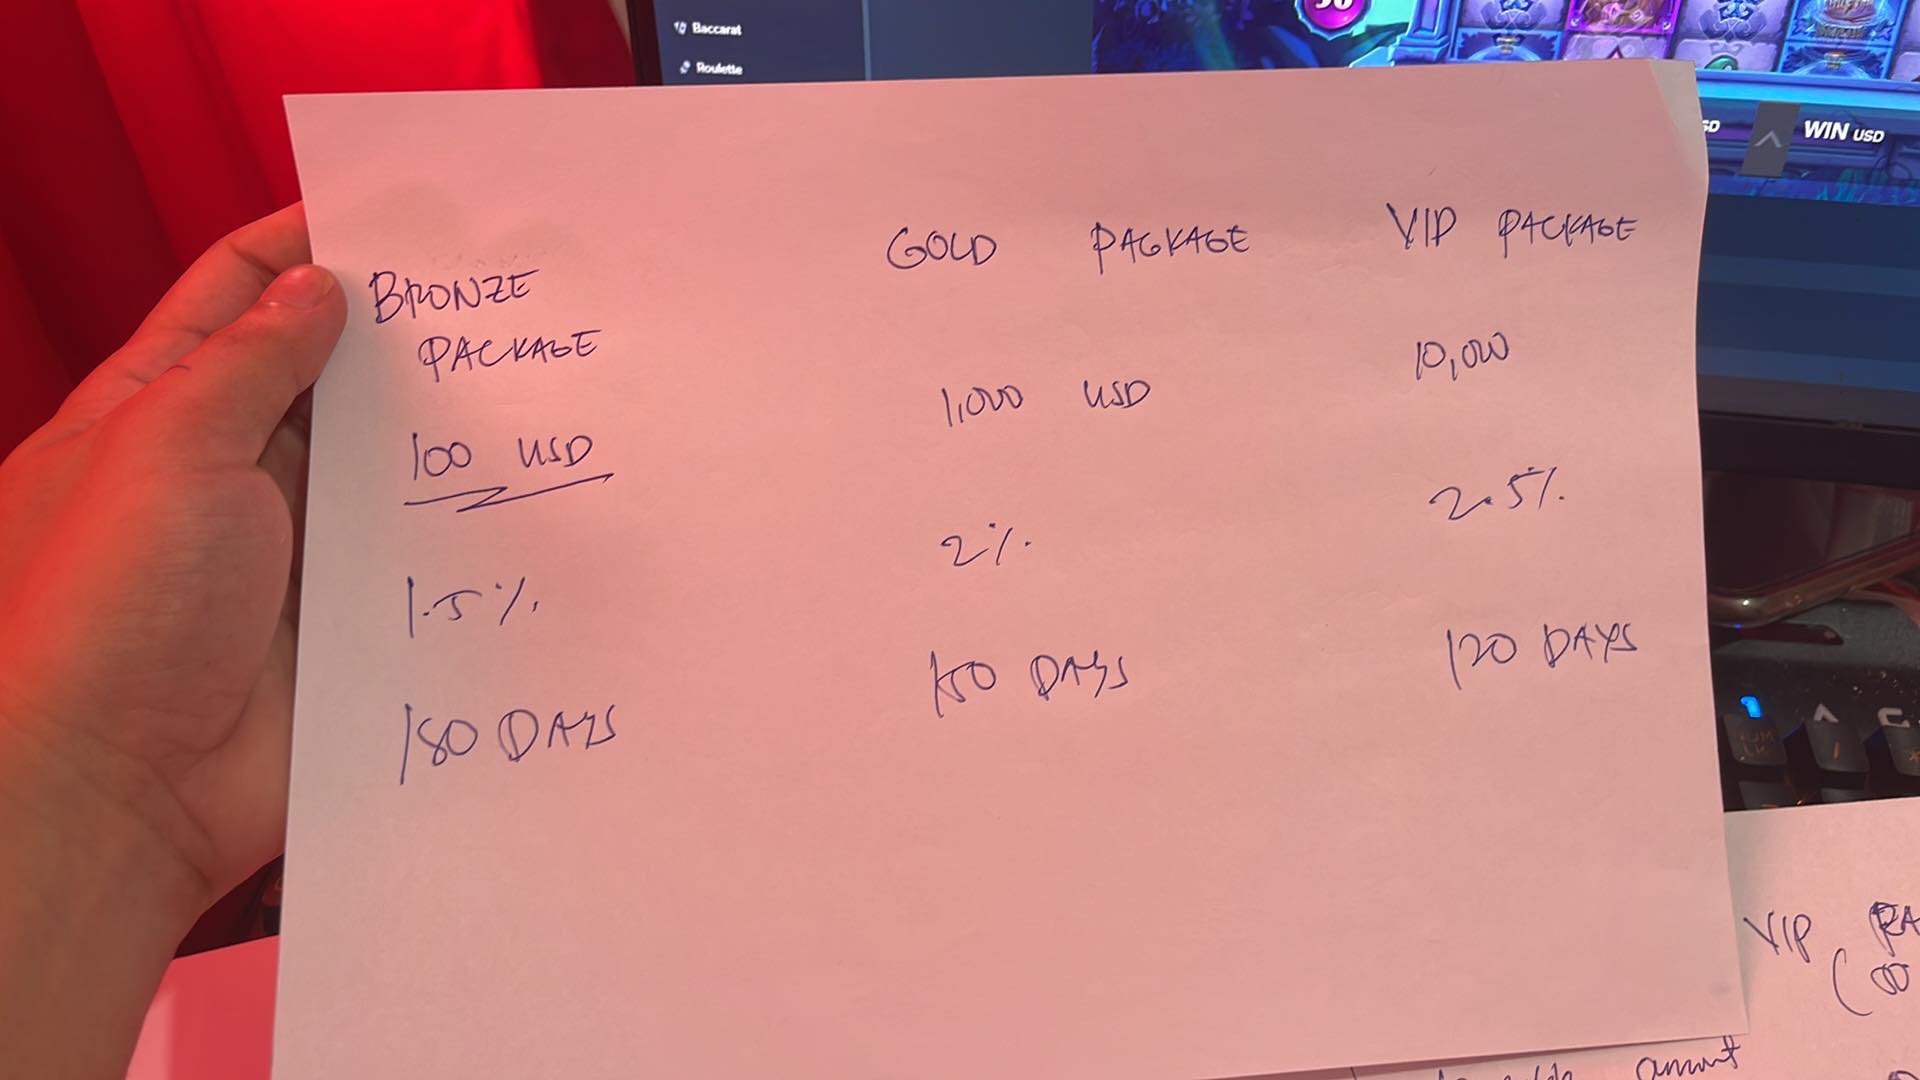 Baccarat
Roulette
WIN USD
BRONZE
PACKAGE
100 USD
1.5%
180 DAYS
GOLD PAGKAGE
1,000 USD
2%
150 DAYS
VIP PACKAGE
10,000
2.5%
120 DAYS
VIP
amount